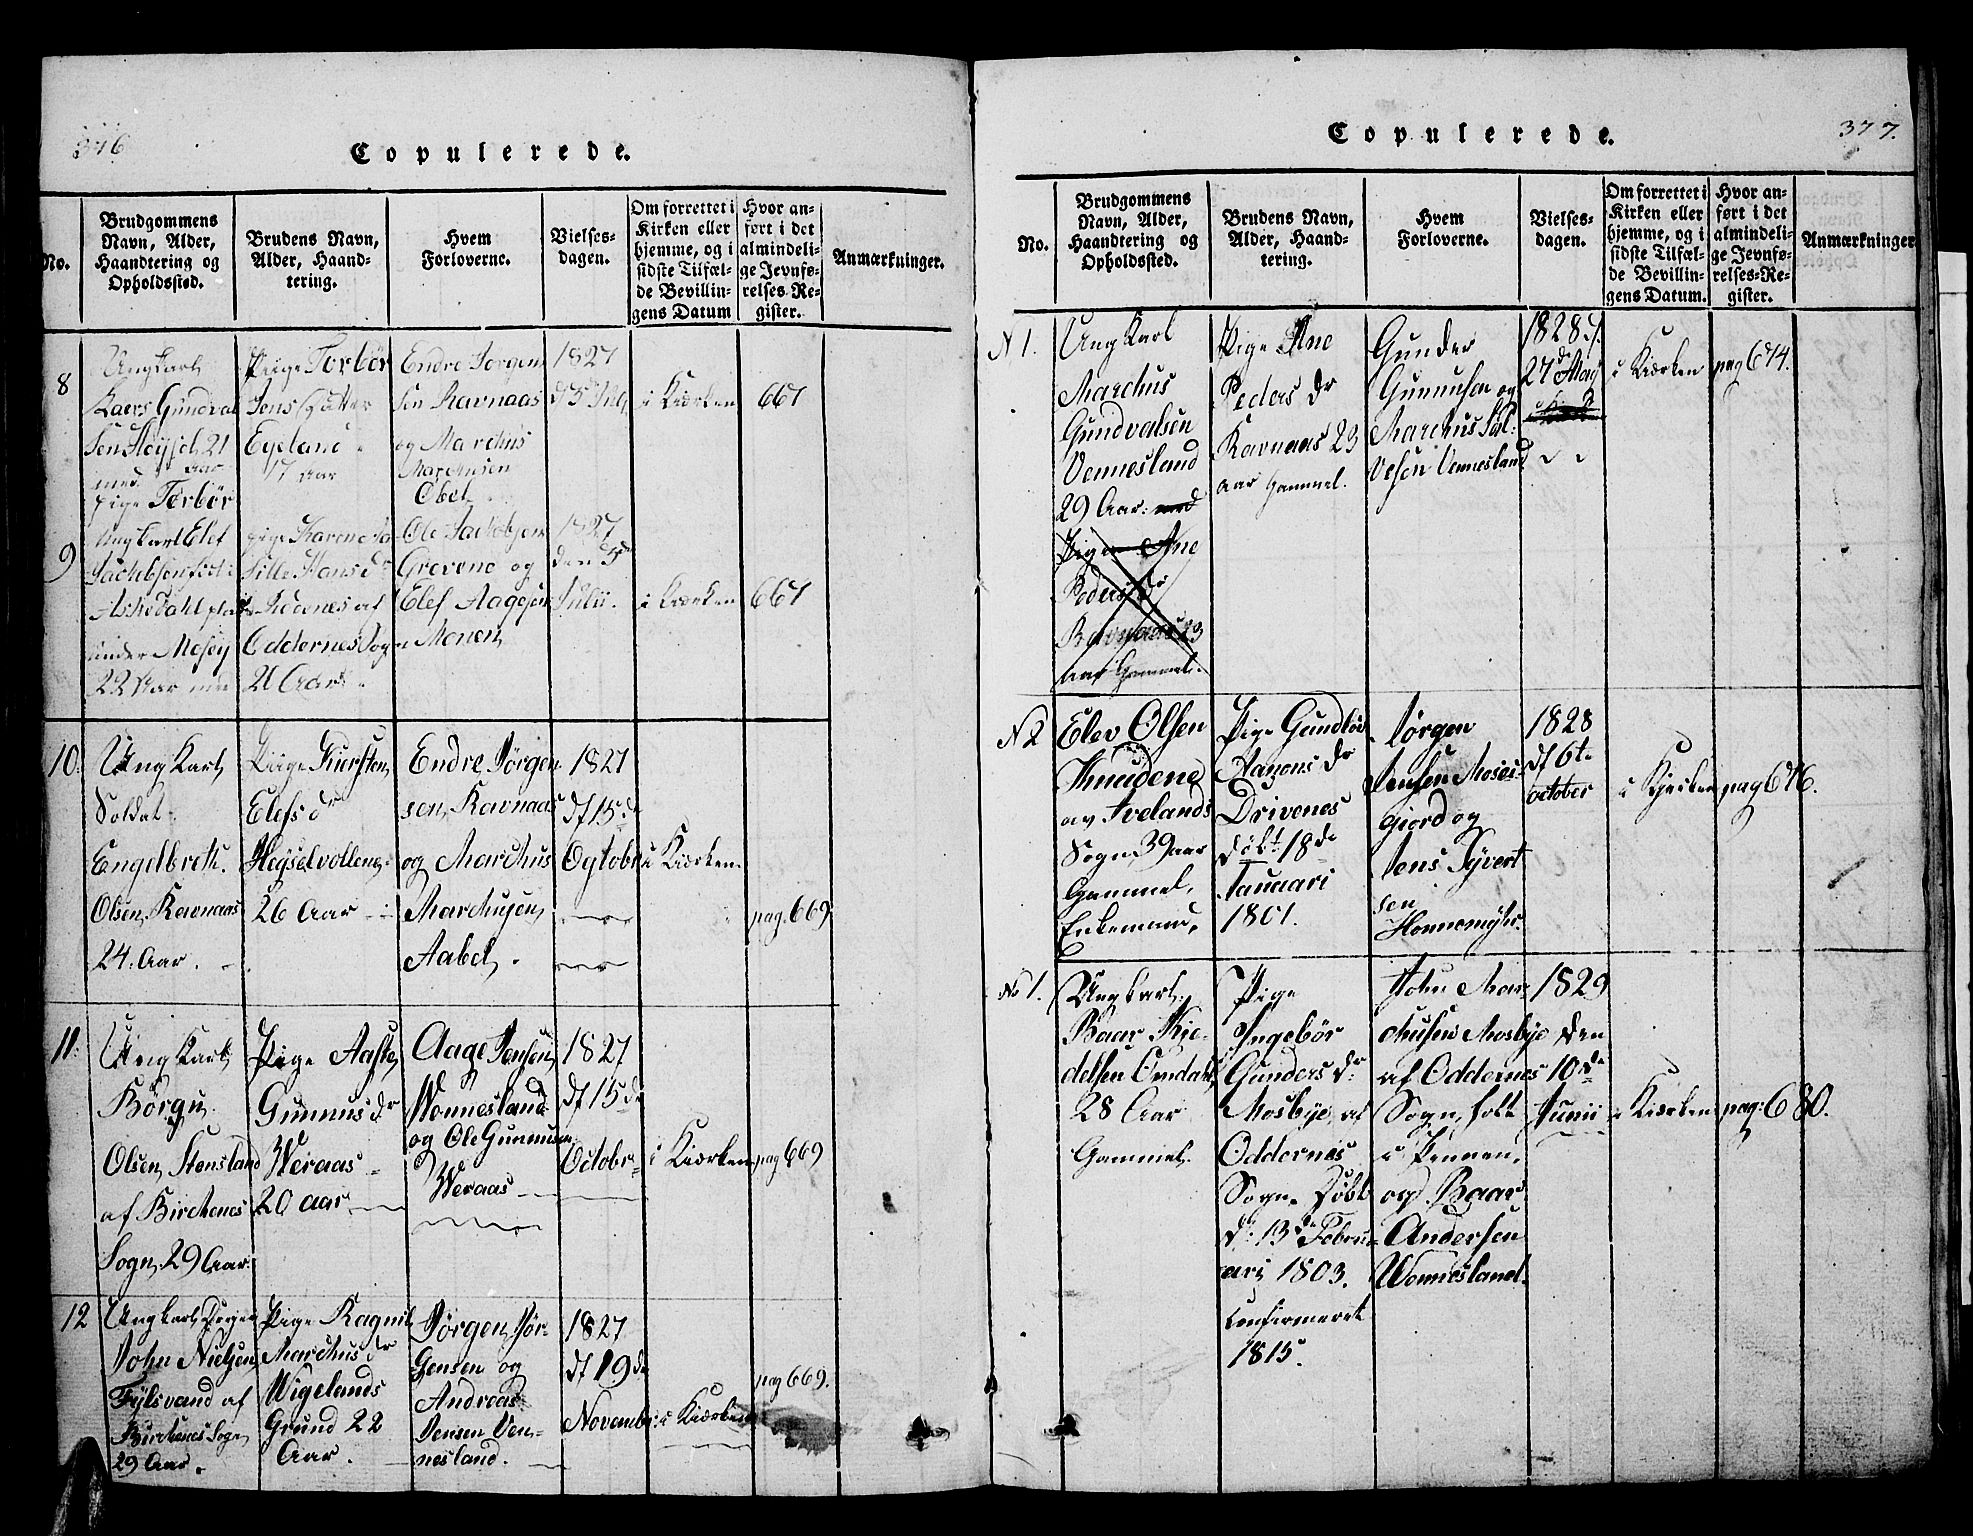 376
Copulerede.
No.
Brudgommens
Navn, Alder,
Haandtering og
Opholdssted.
Brudens Navn,
Alder, Haand-
tering.
Hvem
Forloverne.
Vielses-
dagen.
Om forrettet i
Kirken eller
hjemme, og i
sidste Tilfæl-
de Bevillin-
gens Datum
Hvor an-
ført i det
almindeli-
ge Jevnfø-
relses-Re-
gister.
Anmærkninger.
8
Ungkarl
Gundval
sen 21
Aar
med
pige Torbør
Pige Torbør
Jens Datter
Egeland
17 Aar
Endre Jørgen
sen Ravnaas
og Marchus
Marchusen
Obel
1827
i Kiærken
667
9
Ungkarl Elef
Jachobsen
under Mosey
22 Aar
pige Karen
Hans Dr
af
Oddernes Sogn
21 Aar
Ole Jachobsen
Grevene og
Elef Aagesen
Monen
1827
den 5te
Julii.
i Kiærken
667
10.
Ung Karl
Soldat
Engelbreth.
Olsen, Ravnaas
24. Aar.
Piige Kirsten
Elefs dr
Heyselvollene
26 Aar
Endre Jørgen
sen, Ravnaas
og Marchus
Marchusen
Aabel.
1827
d 15de
Octobr
i Kiærken.
pag. 669
11.
Ung Karl
Børgu
Olsen, Stensland
af Birchenes
Sogn, 29 Aar.
Pige Aaste
Gunnus dr
Weraas
20 aar
Aage Jensen
Wonnesland
og Ole Gunnusen
Weraas
1827
d 15de
Octobr
i Kiærken
pag 669
12
Ungkarl
John Nielsen,
af
Birchenes Sogn
29 Aar.
Pige Ragnil
Marchus dr
Wigelands
Grund 22
Aar.
Jørgen Jør-
gensen og
Andreas
Jensen Ven-
nesland.
1827
d 19de
November
i Kiærken
pag 669.
377.
Copulerede.
No.
Brudgommens
Navn, Alder,
Haandtering og
Opholdssted.
Brudens Navn,
Alder, Haand-
tering.
Hvem
Forloverne.
Vielses-
dagen.
Om forrettet i
Kirken eller
hjemme, og i
sidste Tilfæl-
de Bevillin-
gens Datum.
Hvor an-
ført i det
almindeli-
ge Jevnfø-
relses-Re-
gister.
Anmærkninger
N 1.
Ung Karl
Marchus
Gundvalsen
Vennesland
29 Aar: med
Pige Ane
Peders Dr
Ravnaas 23
aar Gammel.
Pige Ane
Peders Dr
Ravnaas 23
aar Gammel.
Gunder
Gunnusen og
Marchus Sal-
vesen Vennesland
1828
27de May
i Kiærken
pag 674.
N 2
Elev Olsen
Knudene
av Ivelands
Sogn, 39 aar
Gammel,
Enkemand,
Pige Gundlov
Aanons dr
Drivenes
døbt 18de
Januari
1801.
Jørgen
Jensen Moses-
giord og
Jens Syvert
sen
Honnemyhr.
1828
d 6te
october
i Kjerken
pag 676.
No 1.
Ungkarl
Baar Kje-
delsen Omdahl
28 Aar
Gammel.
Pige
Ingebør
Gunders dr
Mosbye, af
Oddernes
Sogn. døbt
d: 13de Febru-
ari 1803.
Confirmeret
1815.
John Mar-
chusen Mosbye
af Oddernes
Sogn,
og Baar
Andersen
Wonnesland.
1829
den
10de
Junii
i Kiærken
pag: 680.